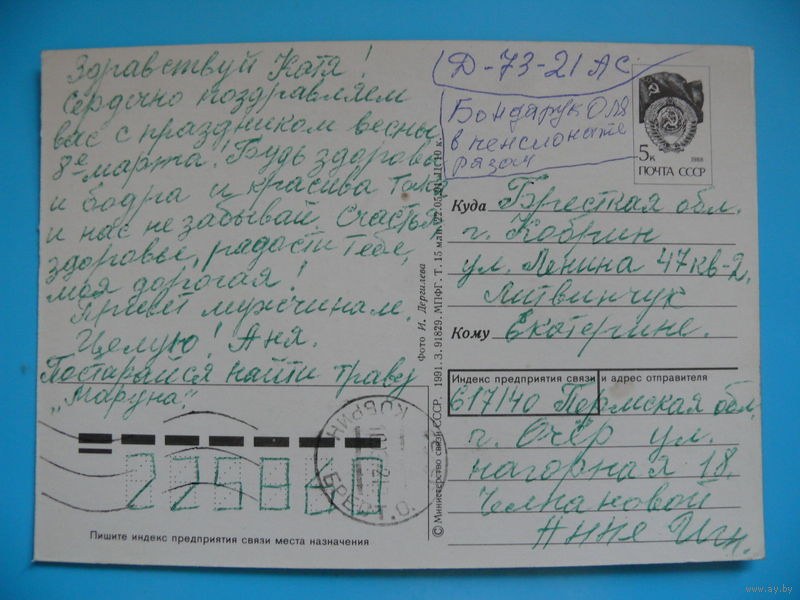 Здравствуй Катя!
Сердечно поздравляем
вас с праздником весны
8е марта! Будь здорова
и бодра и красива тоже
и нас не забывай. Счастья,
здоровье, радости тебе,
моя дорогая!
Привет мужчинам.
Целую! Аня.
Постарайся найти траву
"Маруна".
Д-73-21 АС
Бондарук Оля
в пенсионате
5к
1988
ПОЧТА СССР
Куда Бресткая обл.
г. Кобрин
ул. Ленина 47кв-2.
Литвинчук
Кому Екатерине.
Индекс предприятия связи и адрес отправителя
617140 Пермская обл
г. Очёр ул.
нагорная 18.
Челпановой
Анне Игн.
Фото И. Дергилева
© Министерство связи СССР. 1991. З. 91829. МПФГ. Т. 15 млн.
КОБРИН
БРЕСТ. О.
Пишите индекс предприятия связи места назначения
www.ay.by